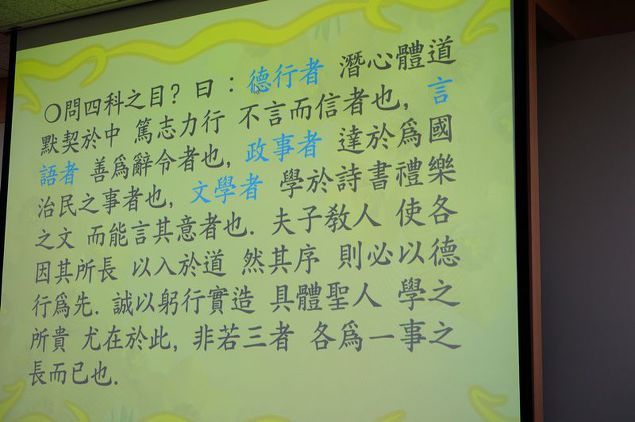 ○問四科之目? 曰 : 德行者 潛心體道
默契於中 篤志力行 不言而信者也, 言
語者 善爲辭令者也, 政事者 達於爲國
治民之事者也, 文學者 學於詩書禮樂
之文 而能言其意者也. 夫子敎人 使各
因其所長 以入於道 然其序 則必以德
行爲先. 誠以躬行實造 具體聖人 學之
所貴 尤在於此, 非若三者 各爲一事之
長而已也.